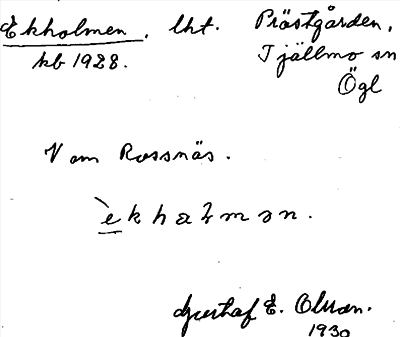 Ekholmen, lht. Prästgården,
kb 1928. Tjällmo sn
Ögl
V om Rossnäs.
èkhaɫmən.
Gusthaf E. Olsson.
1930